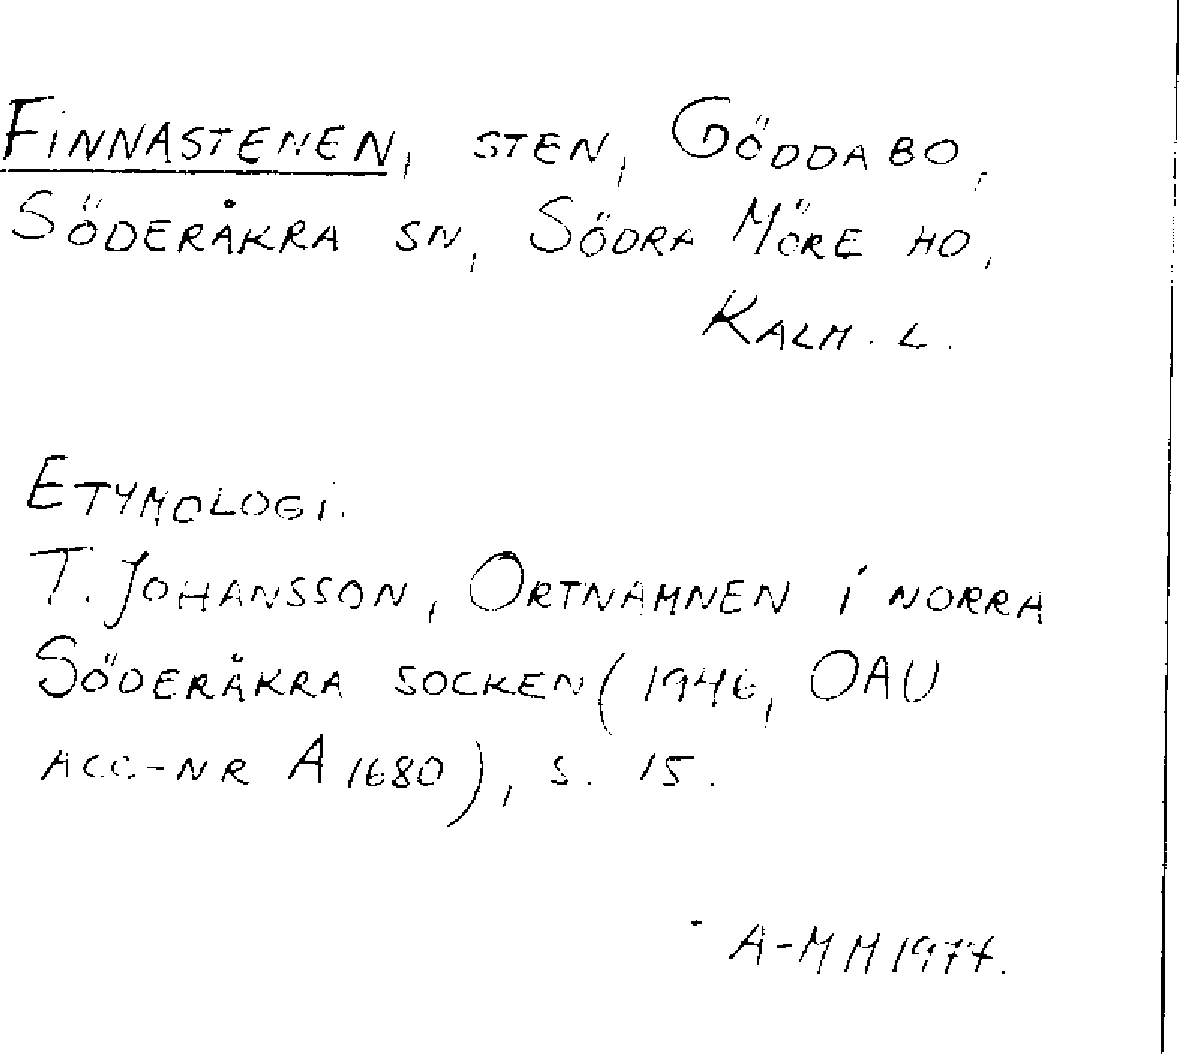 FINNASTENEN, STEN, GÖDDABO,
SÖDERÅKRA SN, SÖDRA MÖRE HD,
KALM. L.
ETYMOLOGI.
T. JOHANSSON, ORTNAMNEN I NORRA
SÖDERÅKRA SOCKEN (1946, OAU
ACC-NR A 1680), S. 15.
A-MM 1977.